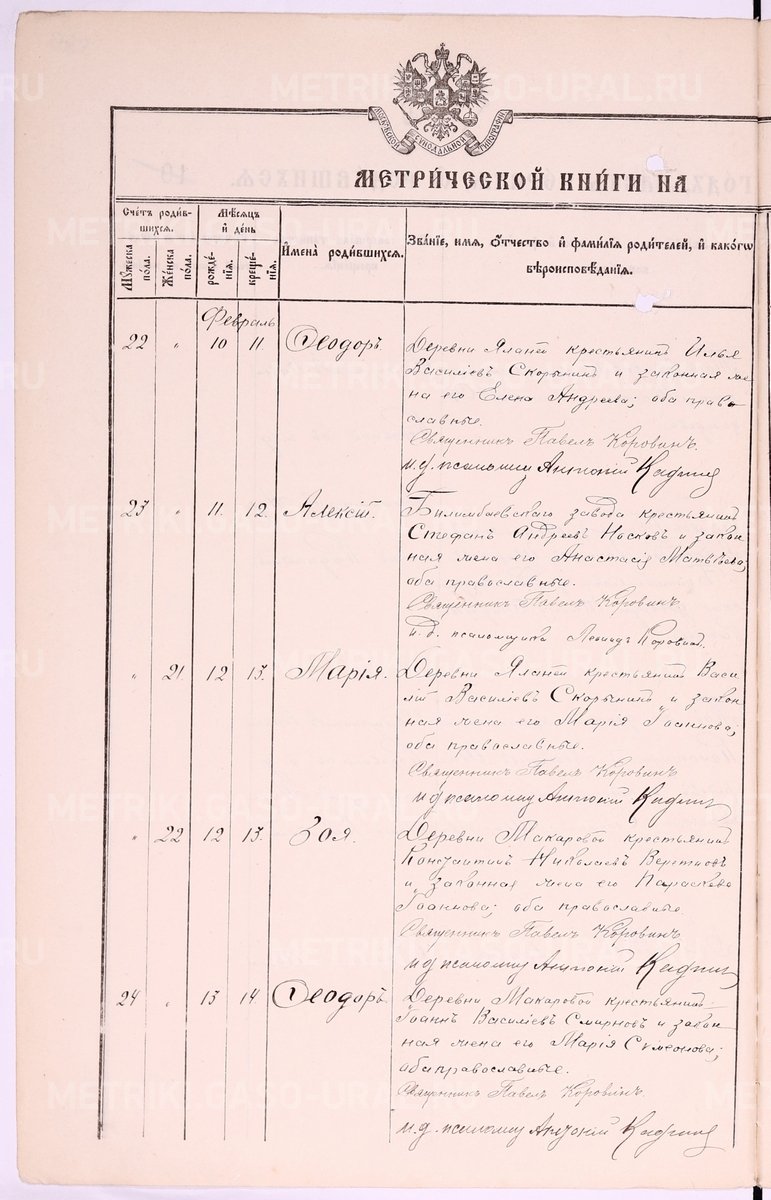 МОСКОВСКОЙ СѴНОДАЛЬНОЙ ТИПОГРАФІИ
МЕТРИЧЕСКОЙ КНИГИ НА
Счетъ родив-
шихся.
Мѣсяцъ
и день
Мужеска
пола.
Женска
пола.
рожде-
нія.
креще-
нія.
Имена родившихся.
Званіе, имя, отчество и фамилія родителей, и какого
вѣроисповѣданія.
Февраль
22 " 10 11. Ѳеодоръ.
Деревни Яланей крестьянинъ Илья
Василіевъ Скорынинъ и законная же-
на его Елена Андреева; оба право-
славные.
Священникъ Павелъ Коровинъ.
и. д. псаломщ Антоній
23 " 11. 12. Алексій.
Билимбаевскаго завода крестьянинъ
Стефанъ Андреевъ Носковъ и закон-
ная жена его Анастасія Матвѣева;
оба православные.
Священникъ Павелъ Коровинъ.
и. д. псаломщика Леонидъ Коровинъ.
" 21 12 13. Марія.
Деревни Яланей крестьянинъ Васи-
лій Василіевъ Скорынинъ и закон-
ная жена его Марія Іоаннова;
оба православные.
Священникъ Павелъ Коровинъ
и д псаломщ Антоній
" 22 12 13. Зоя.
Деревни Макаровой крестьянинъ
Константинъ Николаевъ
и законная жена его Параскева
Іоаннова; оба православные.
Священникъ Павелъ Коровинъ.
и д псаломщ Антоній
24 " 13 14 Ѳеодоръ.
Деревни Макаровой крестьянинъ
Іоаннъ Василіевъ Смирновъ и закон-
ная жена его Марія Сѵмеонова;
оба православные.
Священникъ Павелъ Коровинъ.
и. д. псаломщ Антоній